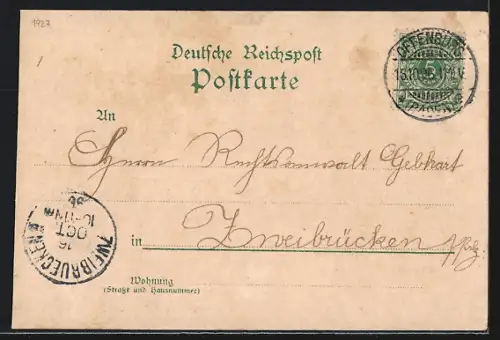 1927
Deutsche Reichspost
Postkarte
OFFENBURG
5
(BADEN)
An
Herrn Rechtsanwalt Gebhart
ZWEIBRUECKEN
16
OCT
10-11 Vm
96
in Zweibrücken
Pfalz
Wohnung
(Straße und Hausnummer)